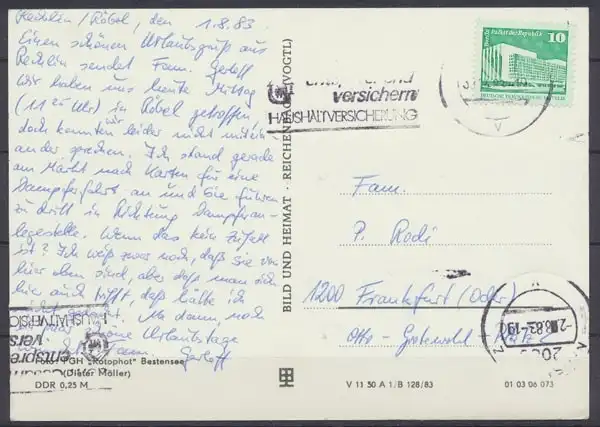 Rechlin/Röbel, den 1.8.83
Einen schönen Urlaubsgruß aus
Rechlin sendet Fam. Gerloff
Wir haben uns heute Mittag
(11 25 Uhr) in Röbel getroffen,
doch konnten wir leider nicht mitein-
ander sprechen. Ich stand gerade
am Markt nach Karten für eine
Dampferfahrt an und Sie fuhren
zu dritt in Richtung Dampferan-
legestelle. Wenn das kein Zufall
ist? Ich weiß zwar noch, daß Sie von
hier oben sind, aber daß man sich
hier auch trifft, das hätte ich
nicht gedacht. Na dann, noch
schöne Urlaubstage
Fam. Gerloff
Foto: PGH „Rotophot“ Bestensee
(Dieter Möller)
DDR 0,25 M
BILD UND HEIMAT · REICHENBACH (VOGTL)
V 11 50 A 1/B 128/83
01 03 06 073
Palast der Republik
10
DEUTSCHE DEMOKRATISCHE REPUBLIK
versichern
HAUSHALTVERSICHERUNG
Fam.
P. Rodi
1200 Frankfurt (Oder)
Otto-Grotewohl
-2.8.83-19